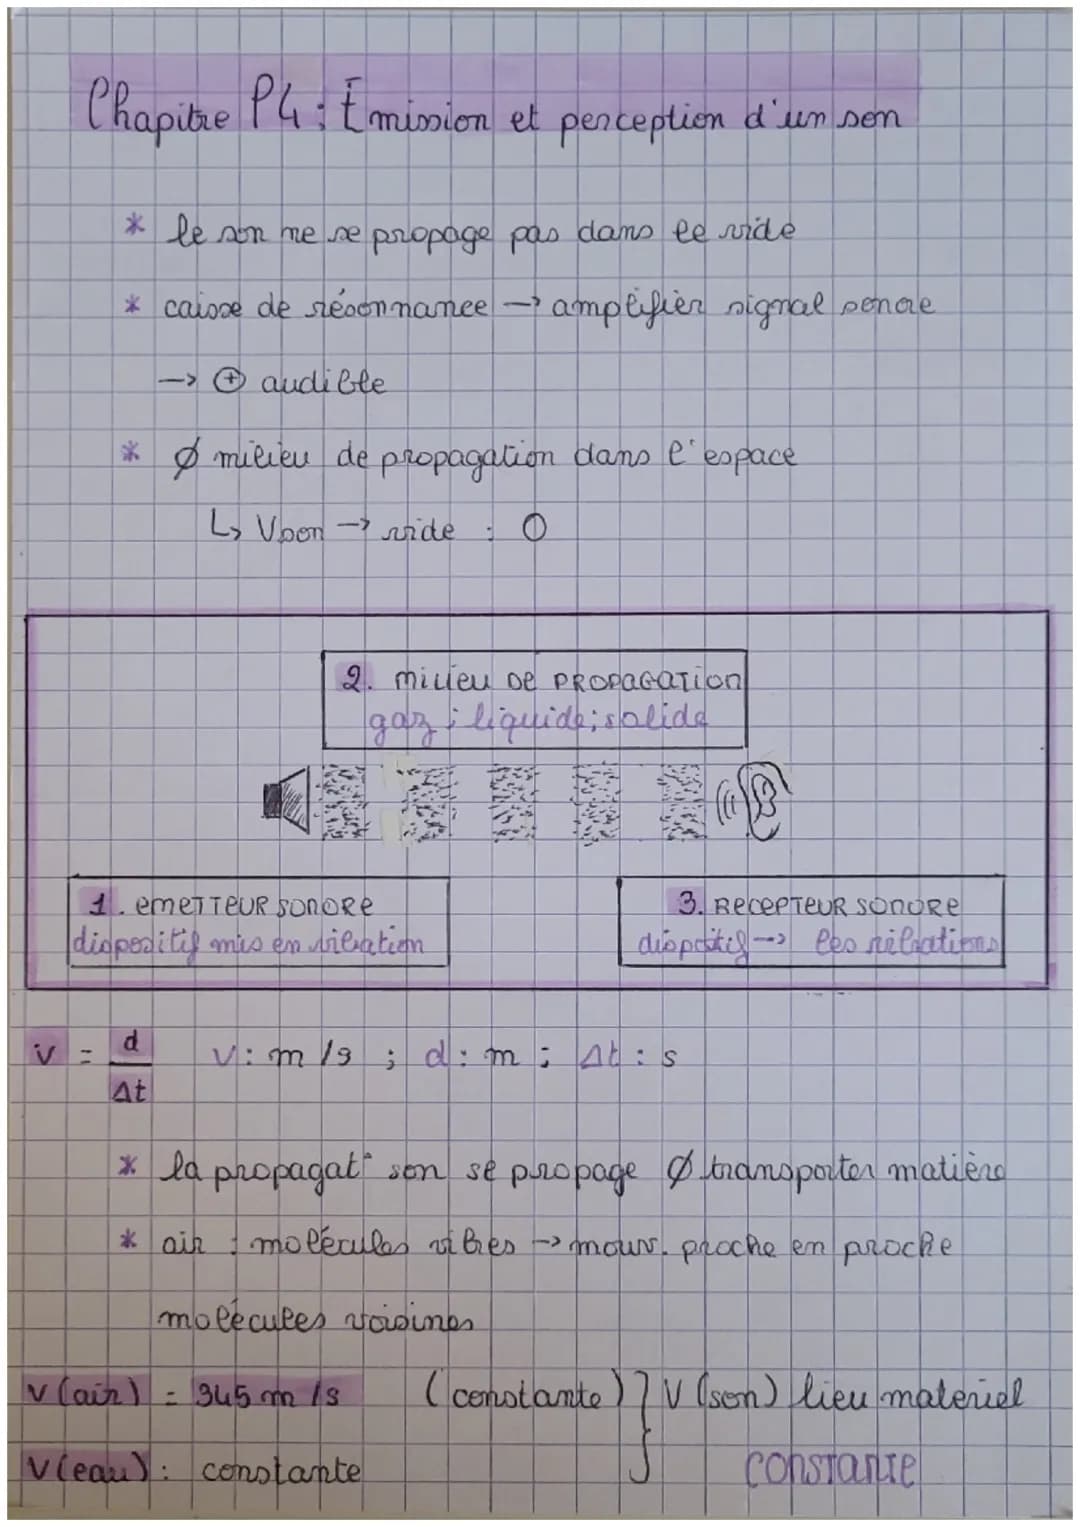 Chapitre P4 : Émission et perception d'un son
* le son ne se propage pas dans le vide
* caisse de résonnance → amplifier signal sonore
→ ⊕ audible
* Ø milieu de propagation dans l'espace
↳ Vson → vide : 0
2. MILIEU DE PROPAGATION
gaz ; liquide ; solide
1. EMETTEUR SONORE
dispositif mis en vibration
3. RECEPTEUR SONORE
dispositif → les vibrations
v = d/Δt v : m/s ; d : m ; Δt : s
* la propagat° son se propage Ø transporter matière
* air : molécules vibres → mouv. proche en proche
molécules voisines
v (air) = 345 m/s (constante) } V (son) lieu materiel
v (eau) : constante CONSTANTE